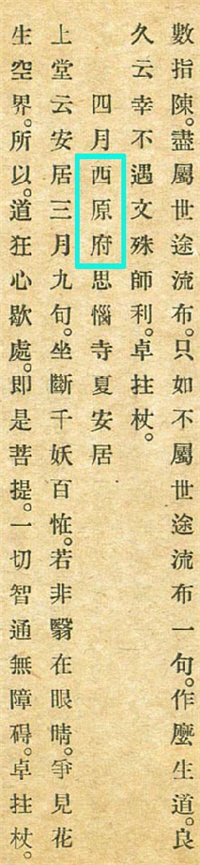 數指陳。盡屬世途流布。只如不屬世途流布一句。作麼生道。良
久云幸不遇文殊師利。卓拄杖。
四月西原府思惱寺夏安居
上堂云安居三月九句。坐斷千妖百恠。若非翳在眼睛。爭見花
生空界。所以道狂心歇處。即是菩提。一切智通無障碍。卓拄杖。